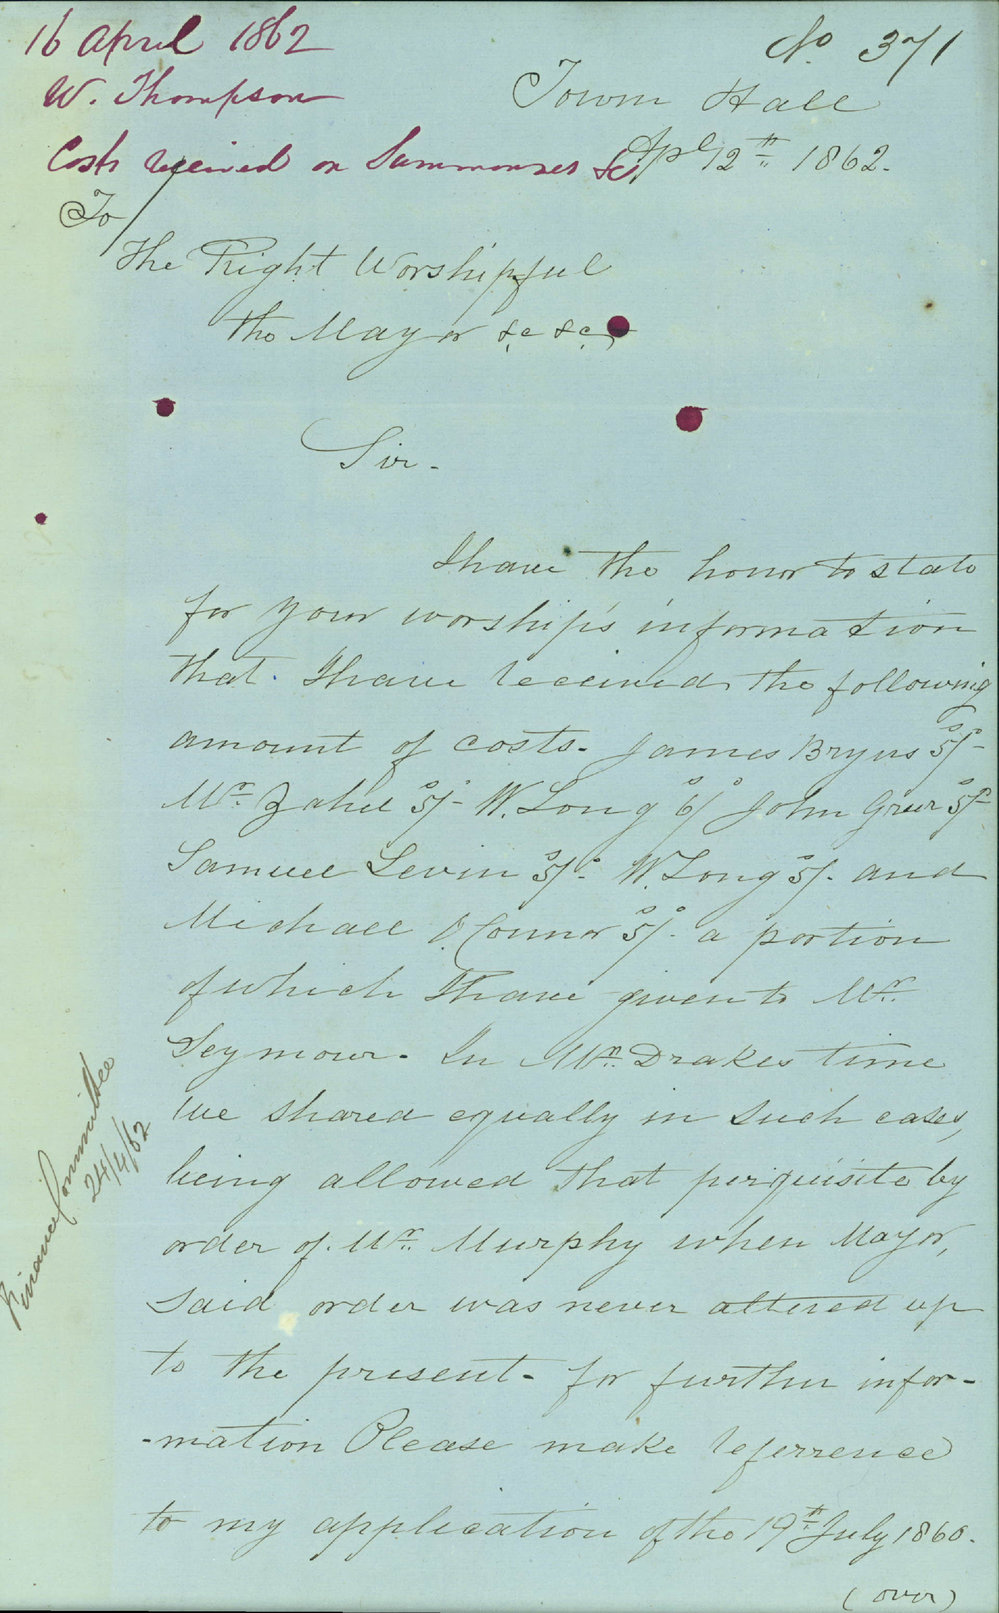 16 April 1862
W. Thompson
Costs received on Summonses &c
No. 371
Town Hall
Apl 12th 1862.
To
The Right Worshipful
the Mayor &c &c,
Sir -
I have the honor to state
for your worship's information
that I have received the following
amount of costs - James Bryns 5/-
Mr. Zahel 5/- W. Long 6/ John Greer 5/-
Samuel Levin 5/- W. Long 5/- and
Michael O'Connor 5/- a portion
of which I have given to Mr.
Seymour - In Mr. Drakes time
we shared equally in such cases,
being allowed that perquisite by
order of Mr. Murphy when Mayor,
said order was never altered up
to the present - for further infor-
-mation Please make referrence
to my application of the 19th July 1860.
(over)
Finance Committee
24/4/62